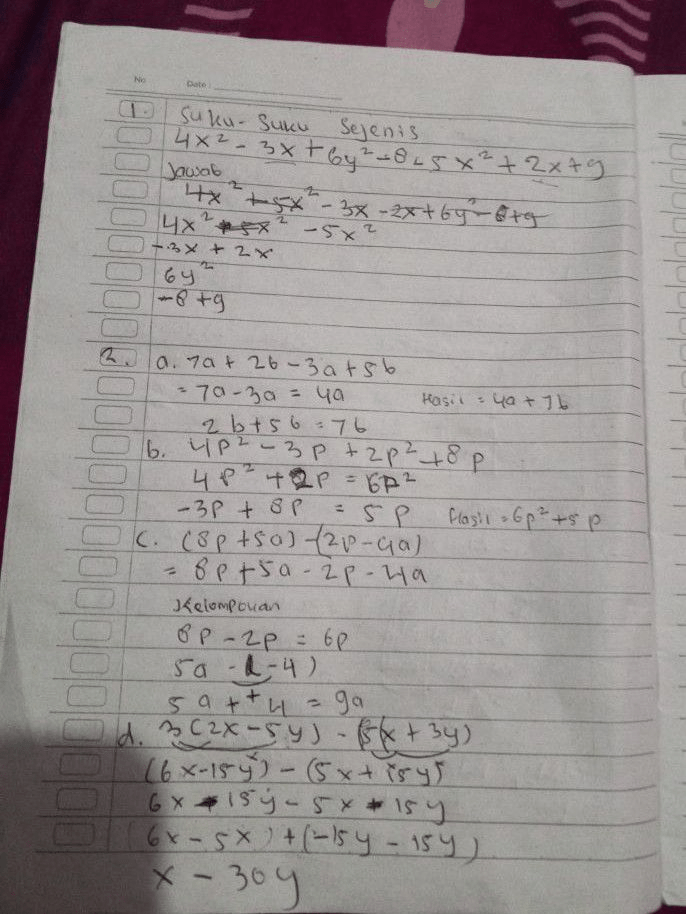 No Date:
1. Suku-Suku Sejenis
4x² - 3x + 6y² - 8 - 5x² + 2x + 9
Jawab
4x² + 5x² - 3x - 2x + 6y² - 8 + 9
4x² + 5x² - 5x²
-3x + 2x
6y²
-8 + 9
2. a. 7a + 2b - 3a + 5b
= 7a - 3a = 4a Hasil = 4a + 7b
2b + 5b = 7b
b. 4p² - 3p + 2p² + 8p
4p² + 2p = 6p²
-3p + 8p = 5p Hasil = 6p² + 5p
c. (8p + 5a) - (2p - 4a)
= 8p + 5a - 2p - 4a
Kelompokan
8p - 2p = 6p
5a - (-4)
5a + + 4 = 9a
d. 3(2x - 5y) - (5(x + 3y)
(6x - 15y) - (5x + 15y)
6x - 15y - 5x - 15y
(6x - 5x) + (-15y - 15y)
x - 30y